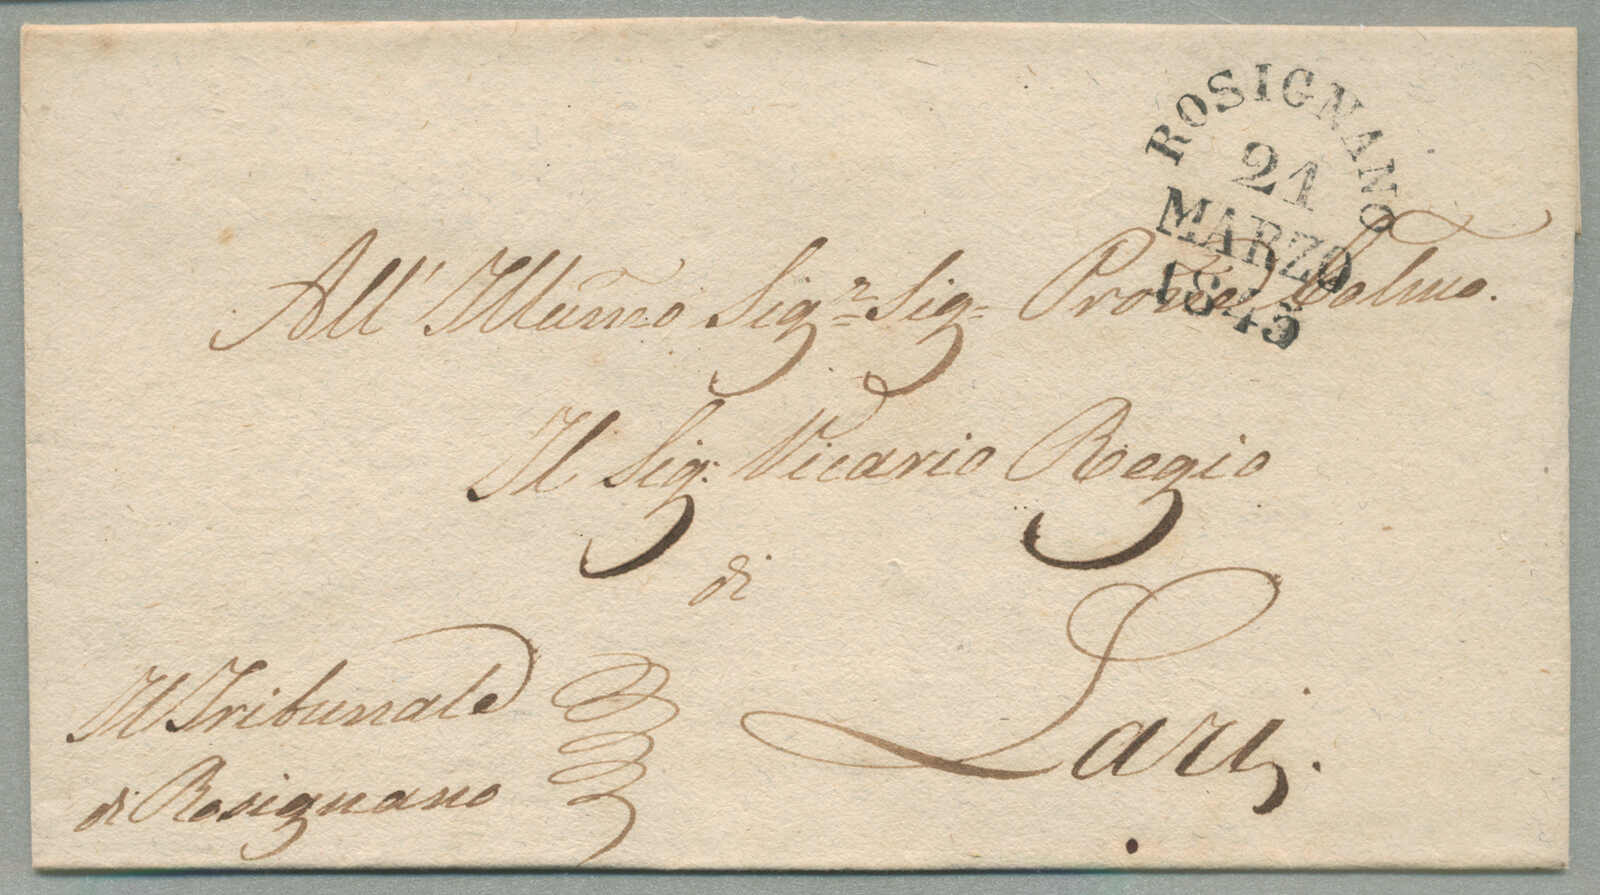 ROSIGNANO
21
MARZO
1845
All' Illumo Sigr. Sig. Prone Colmo.
Il Sig: Vicario Regio
di
Lari.
Il Tribunale
di Rosignano